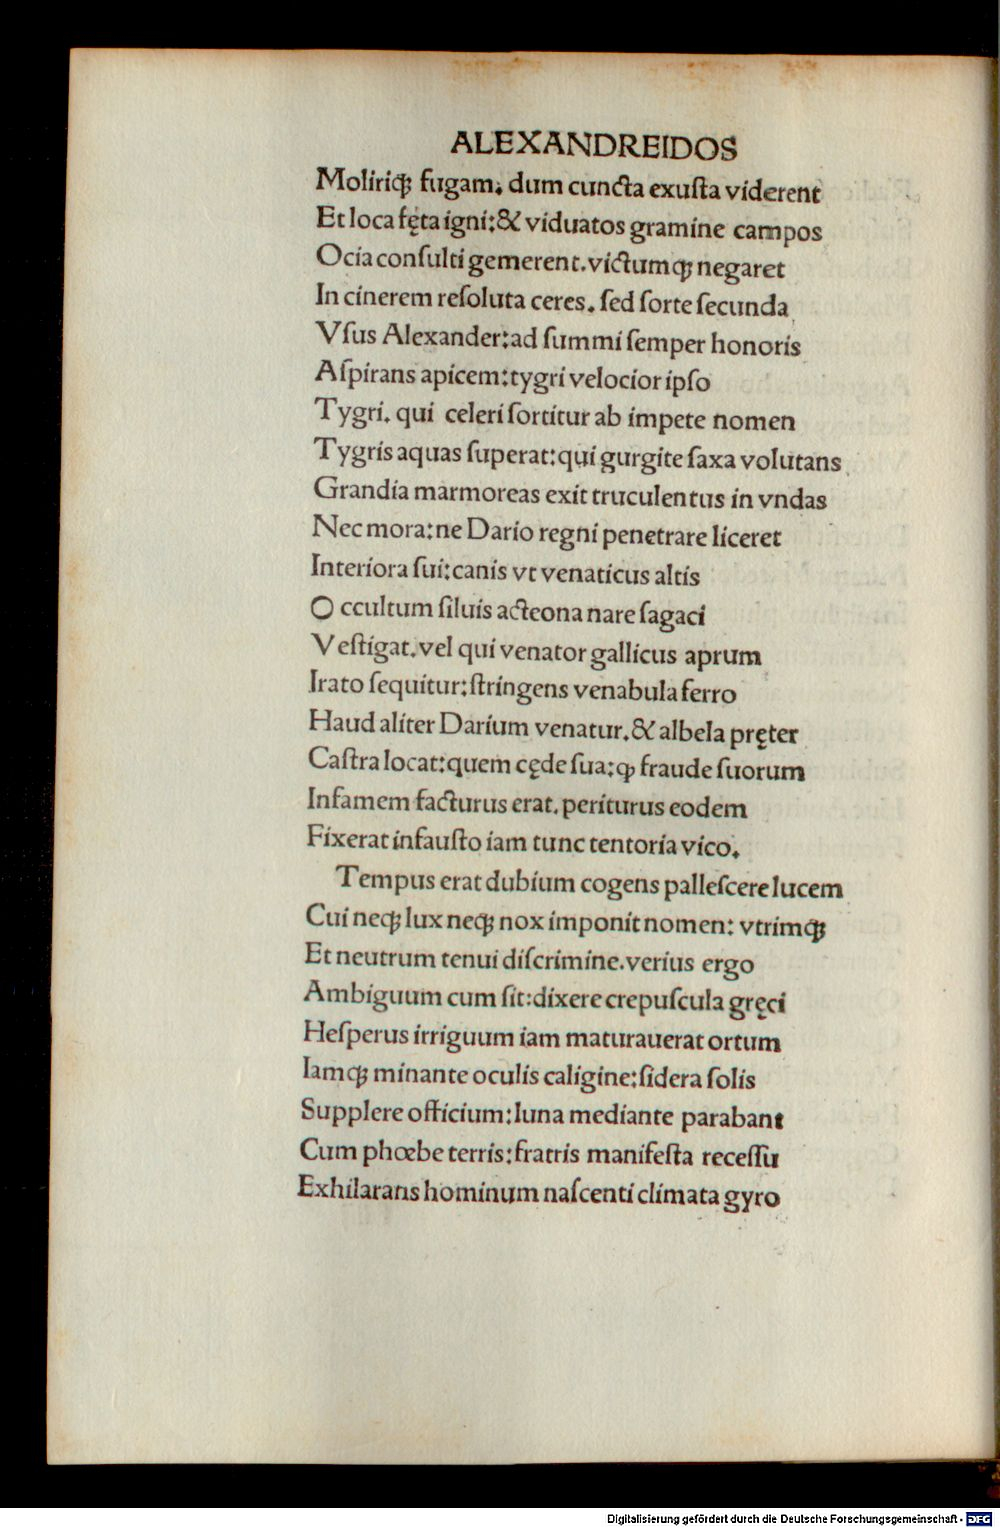 ALEXANDREIDOS
Moliriqꝫ fugam. dum cuncta exuſta viderent
Et loca fęta igni:& viduatos gramine campos
Ocia conſulti gemerent. victumqꝫ negaret
In cinerem reſoluta ceres. ſed ſorte ſecunda
Vſus Alexander:ad ſummi ſemper honoris
Aſpirans apicem:tygri velocior ipſo
Tygri. qui celeri ſortitur ab impete nomen
Tygris aquas ſuperat:qui gurgite ſaxa volutans
Grandia marmoreas exit truculentus in vndas
Nec mora:ne Dario regni penetrare liceret
Interiora ſui:canis vt venaticus altis
O ccultum ſiluis acteona nare ſagaci
Veſtigat. vel qui venator gallicus aprum
Irato ſequitur:ſtringens venabula ferro
Haud aliter Darium venatur. & albela pręter
Caſtra locat:quem cęde ſua:ꝙ fraude ſuorum
Infamem facturus erat. periturus eodem
Fixerat infauſto iam tunc tentoria vico.
Tempus erat dubium cogens palleſcere lucem
Cui neqꝫ lux neqꝫ nox imponit nomen: vtrimqꝫ
Et neutrum tenui diſcrimine. verius ergo
Ambiguum cum ſit:dixere crepuſcula gręci
Heſperus irriguum iam maturauerat ortum
Iamqꝫ minante oculis caligine:ſidera ſolis
Supplere officium:luna mediante parabant
Cum phœbe terris:fratris manifeſta receſſu
Exhilarans hominum naſcenti climata gyro
Digitalisierung gefördert durch die Deutsche Forschungsgemeinschaft - DFG